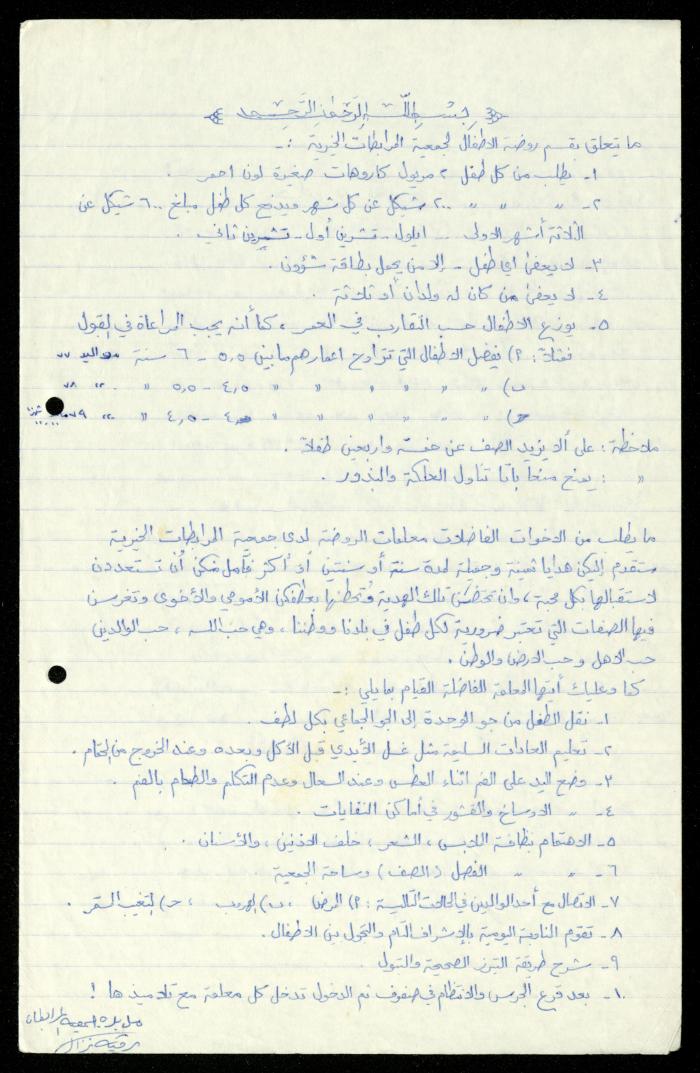 بسم الله الرحمن الرحيم
ما يتعلق بقسم روضة الاطفال لجمعية المرابطات الخيرية :ـ
١- يطلب من كل طفل ٢ مريول كاروهات صغيرة لون احمر .
٢- " " " ٢٠٠ شيكل عن كل شهر ويدفع كل طفل مبلغ ٦٠٠ شيكل عن
الثلاثة أشهر الاولى ـ ايلول - تشرين أول - تشرين ثاني .
٣- لا يعفى اي طفل - إلا من يحمل بطاقة شؤون .
٤- لا يعفى من كان له ولدان أو ثلاثة .
٥- يوزع الاطفال حسب التقارب في العمر ، كما أنه يجب المراعاة في القبول
فمثلاً : ٢) يفضل الاطفال التي تتراوح اعمارهم ما بين ٥,٥ - ٦ سنة مواليد ٧٧
ب) " " " " " ٤,٥ - ٥,٥ " " ٧٨
ج) " " " " " ٤ - ٤,٥ " " ٧٩
ملاحظة : على ألا يزيد الصف عن خمسة واربعين طفلاً .
" : يمنع منعاً باتاً تناول العلكة والبذور .
ما يطلب من الاخوات الفاضلات معلمات الروضة لدى جمعية المرابطات الخيرية
ستقدم إليكن هدايا ثمينة وجميلة لمدة سنة أو سنتين أو أكثر فنأمل منكن أن تستعددن
لاستقبالها بكل محبة ، وان تحتضن تلك الهدية وتحطنها بعطفكن الأمومي والأخوي وتغرسن
فيها الصفات التي تعتبر ضرورية لكل طفل في بلدنا ووطننا ، وهي حب الله ، حب الوالدين
حب الاهل وحب الارض والوطن .
كما وعليك أيتها المعلمة الفاضلة القيام بما يلي :ـ
١- نقل الطفل من جو الوحدة إلى الجو الجماعي بكل لطف .
٢- تعليم العادات السليمة مثل غسل الأيدي قبل الأكل وبعده وعند الخروج من الحمام .
٣- وضع اليد على الفم اثناء العطس وعند السعال وعدم التكلم والطعام بالفم .
٤- " الاوساخ والقشور في أماكن النفايات .
٥- الاهتمام بنظافة الملابس ، الشعر ، خلف الاذنين ، والأسنان .
٦- " " الفصل ( الصف ) وساحة الجمعية
٧- الاتصال مع أحد الوالدين في الحالات التالية : ٢) المرض ، ب) الهروب ، ج) التغيب المستمر .
٨- تقوم المناوبة اليومية بالإشراف التام والتجول بين الاطفال .
٩- شرح طريقة التبرز الصحيحة والتبول .
١٠- بعد قرع الجرس والانتظام في صفوف ثم الدخول تدخل كل معلمة مع تلاميذها !
مديرة جمعية المرابطات
رقية نزال